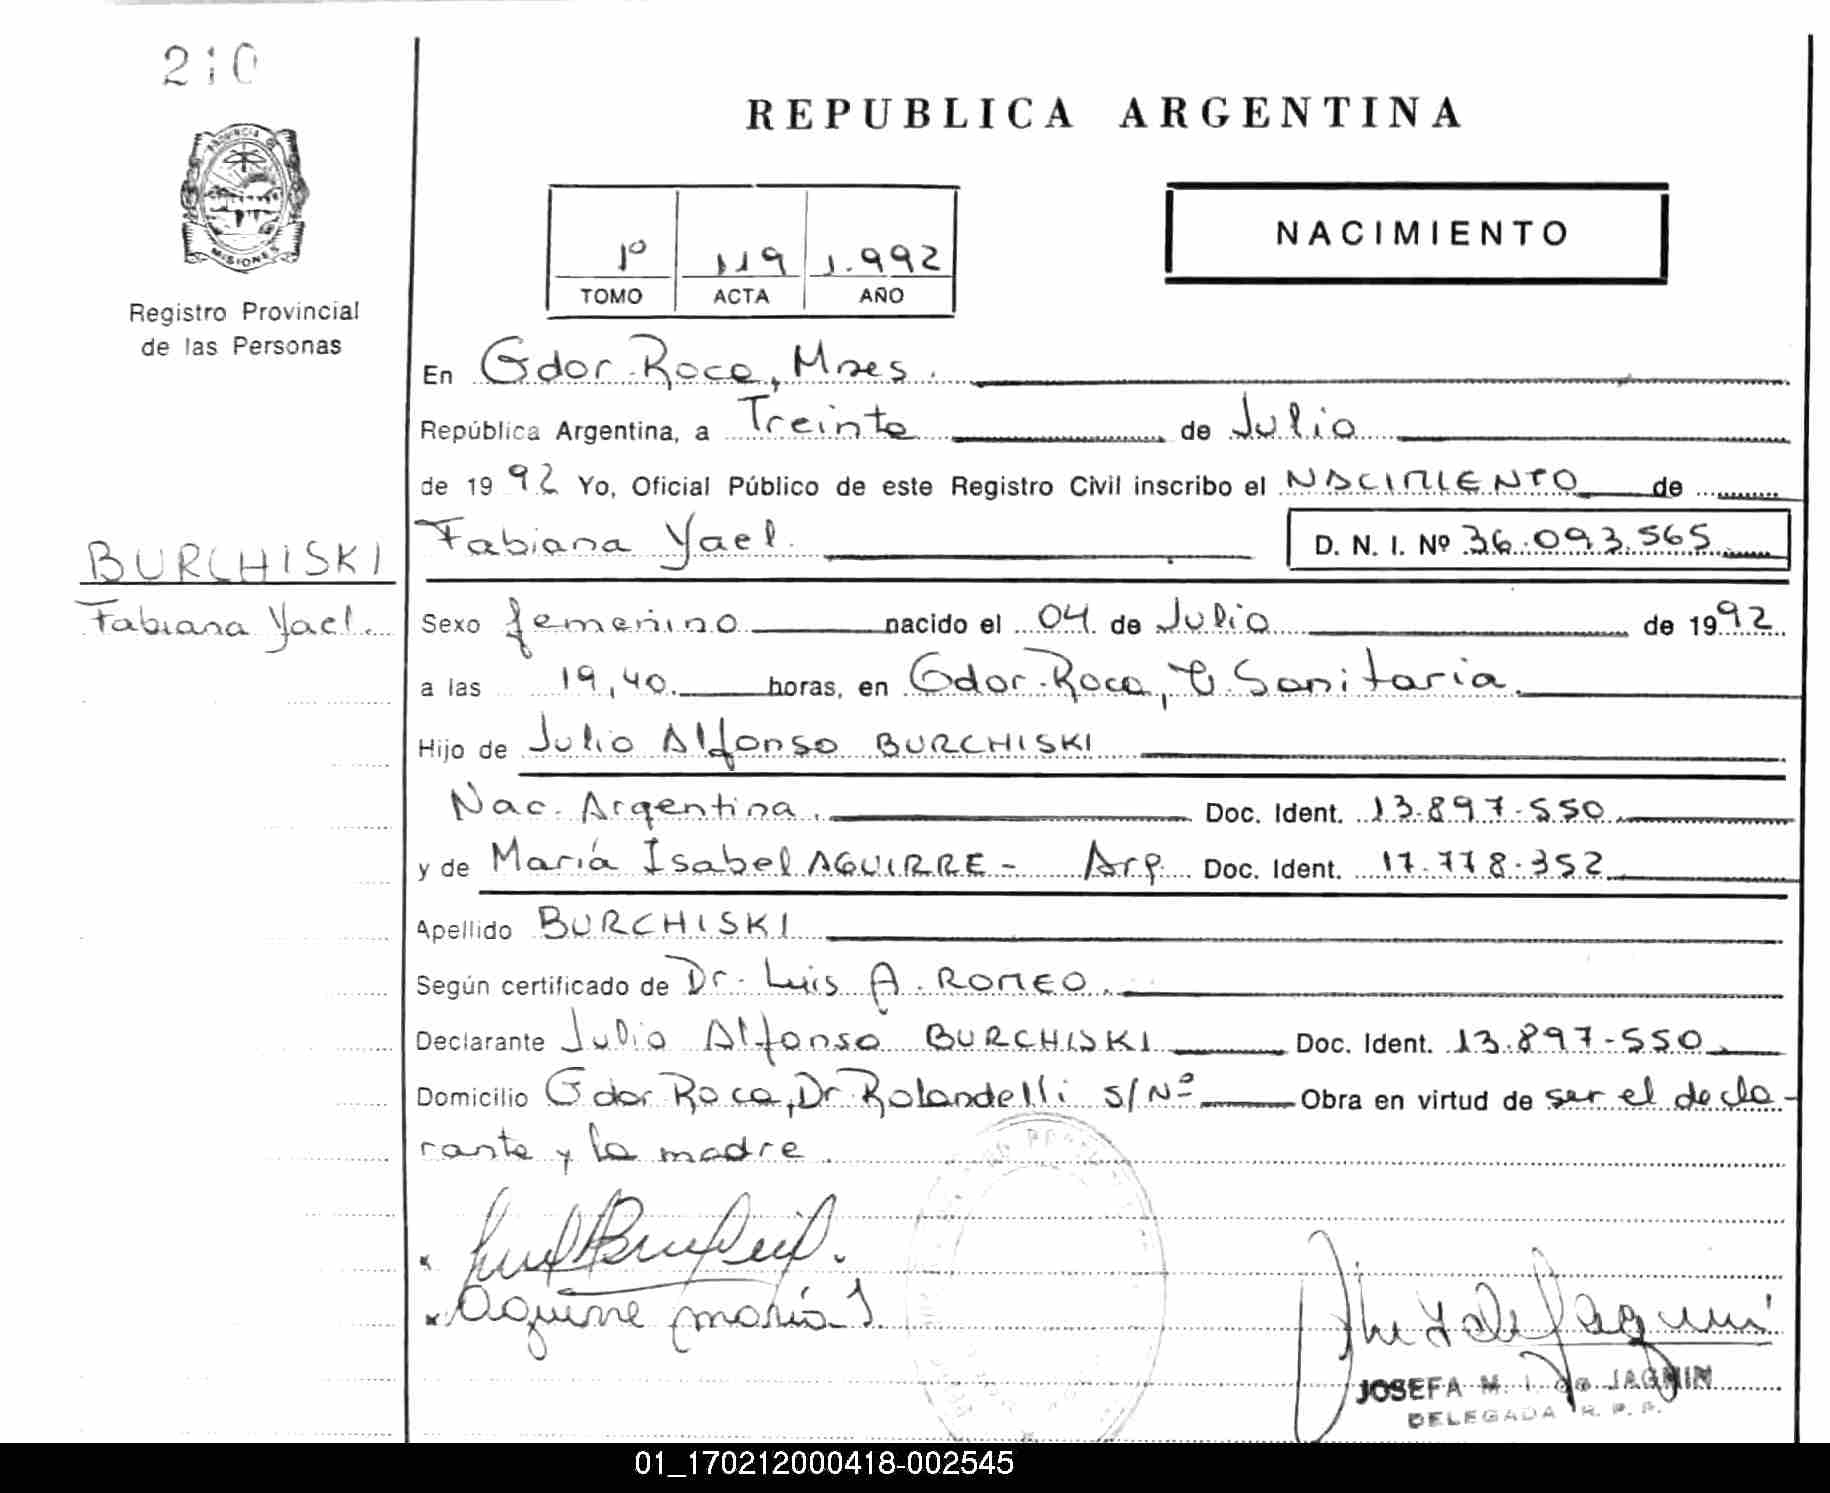 210
PROVINCIA
MISIONES
Registro Provincial
de las Personas
REPUBLICA ARGENTINA
1º 119 1.992
TOMO ACTA AÑO
NACIMIENTO
En Gdor. Roca, Mnes.
República Argentina, a Treinta de Julio
de 1992 Yo, Oficial Público de este Registro Civil inscribo el NACIMIENTO de
Fabiana Yael. D. N. I. Nº 36.093.565
BURCHISKI
Fabiana Yael.
Sexo femenino nacido el 04 de Julio de 1992
a las 19,40. horas, en Gdor. Roca, U. Sanitaria.
Hijo de Julio Alfonso BURCHISKI
Nac. Argentina. Doc. Ident. 13.897.550
y de María Isabel AGUIRRE - Arg. Doc. Ident. 17.778.352
Apellido BURCHISKI
Según certificado de Dr. Luis A. ROMEO.
Declarante Julio Alfonso BURCHISKI Doc. Ident. 13.897-550
Domicilio Gdor Roca, Dr. Rolandelli s/Nº Obra en virtud de ser el decla-
rante y la madre.
Aguirre María I.
JOSEFA M. I. de JAGMIN
DELEGADA R. P. P.
01_170212000418-002545